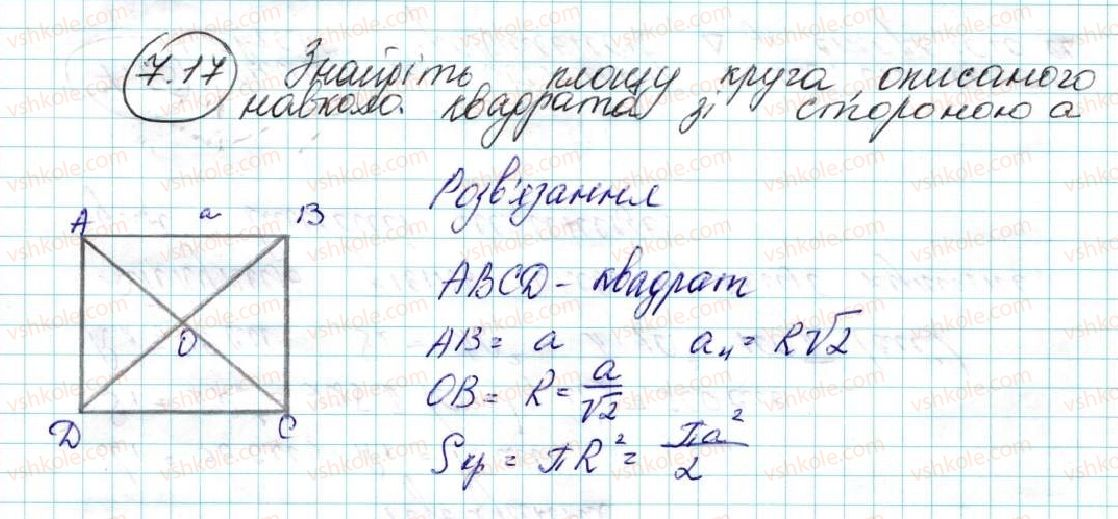 7.17 Знайдіть площу круга описаного
навколо квадрата зі стороною a
Розв'язання
A a B
ABCD - квадрат
AB = a a₄ = R√2
O
OB = R = a/√2
D C
Sкр = πR² = πa²/2
vshkole.com